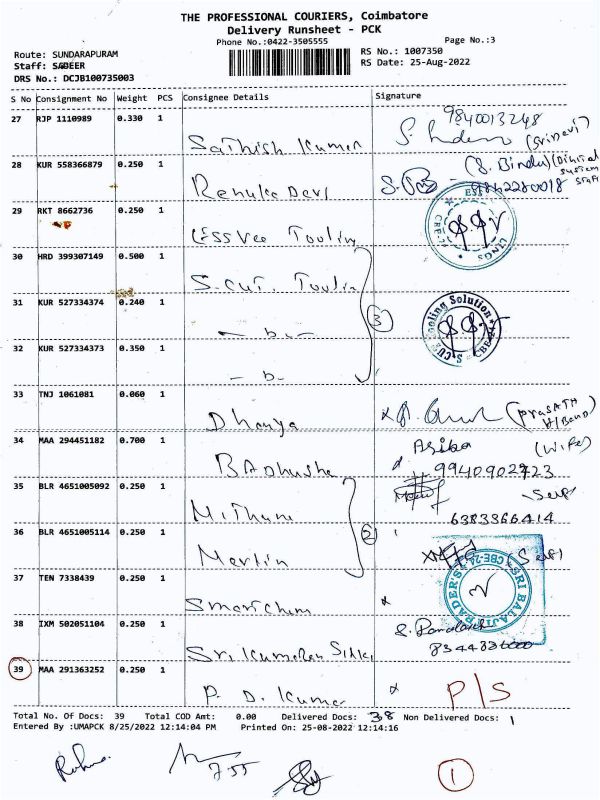 THE PROFESSIONAL COURIERS, Coimbatore
Delivery Runsheet - PCK
Phone No.:0422-3505555 Page No.:3
Route: SUNDARAPURAM RS No.: 1007350
Staff: SADEER RS Date: 25-Aug-2022
DRS No.: DCJB100735003
S No Consignment No Weight PCS Consignee Details Signature
27 RJP 1110989 0.330 1 9840013248
Sathish Kumar (Sridevi)
28 KUR 558366879 0.250 1 (S. Bindu)
Renuka Devi
29 RKT 8662736 0.250 1
ESSVee Toolin
30 HRD 399307149 0.500 1
S.cut. Toolin
31 KUR 527334374 0.240 1 3
32 KUR 527334373 0.350 1
33 TNJ 1061081 0.060 1
Dhanya (prasATH
34 MAA 294451182 0.700 1 Asiba (wife)
Badhusha 9940902723
35 BLR 4651005092 0.250 1 Self
Mithun 6383366414
36 BLR 4651005114 0.250 1 2
Merlin (Self
37 TEN 7338439 0.250 1 SRI BALAJI TRADERS CBE-24
Smartchem
38 IXM 502051104 0.250 1
Sri Kumaran
39 MAA 291363252 0.250 1
P. D. Kumar P/S
Total No. Of Docs: 39 Total COD Amt: 0.00 Delivered Docs: 38 Non Delivered Docs: 1
Entered By :UMAPCK 8/25/2022 12:14:04 PM Printed On: 25-08-2022 12:14:16
7.55
1